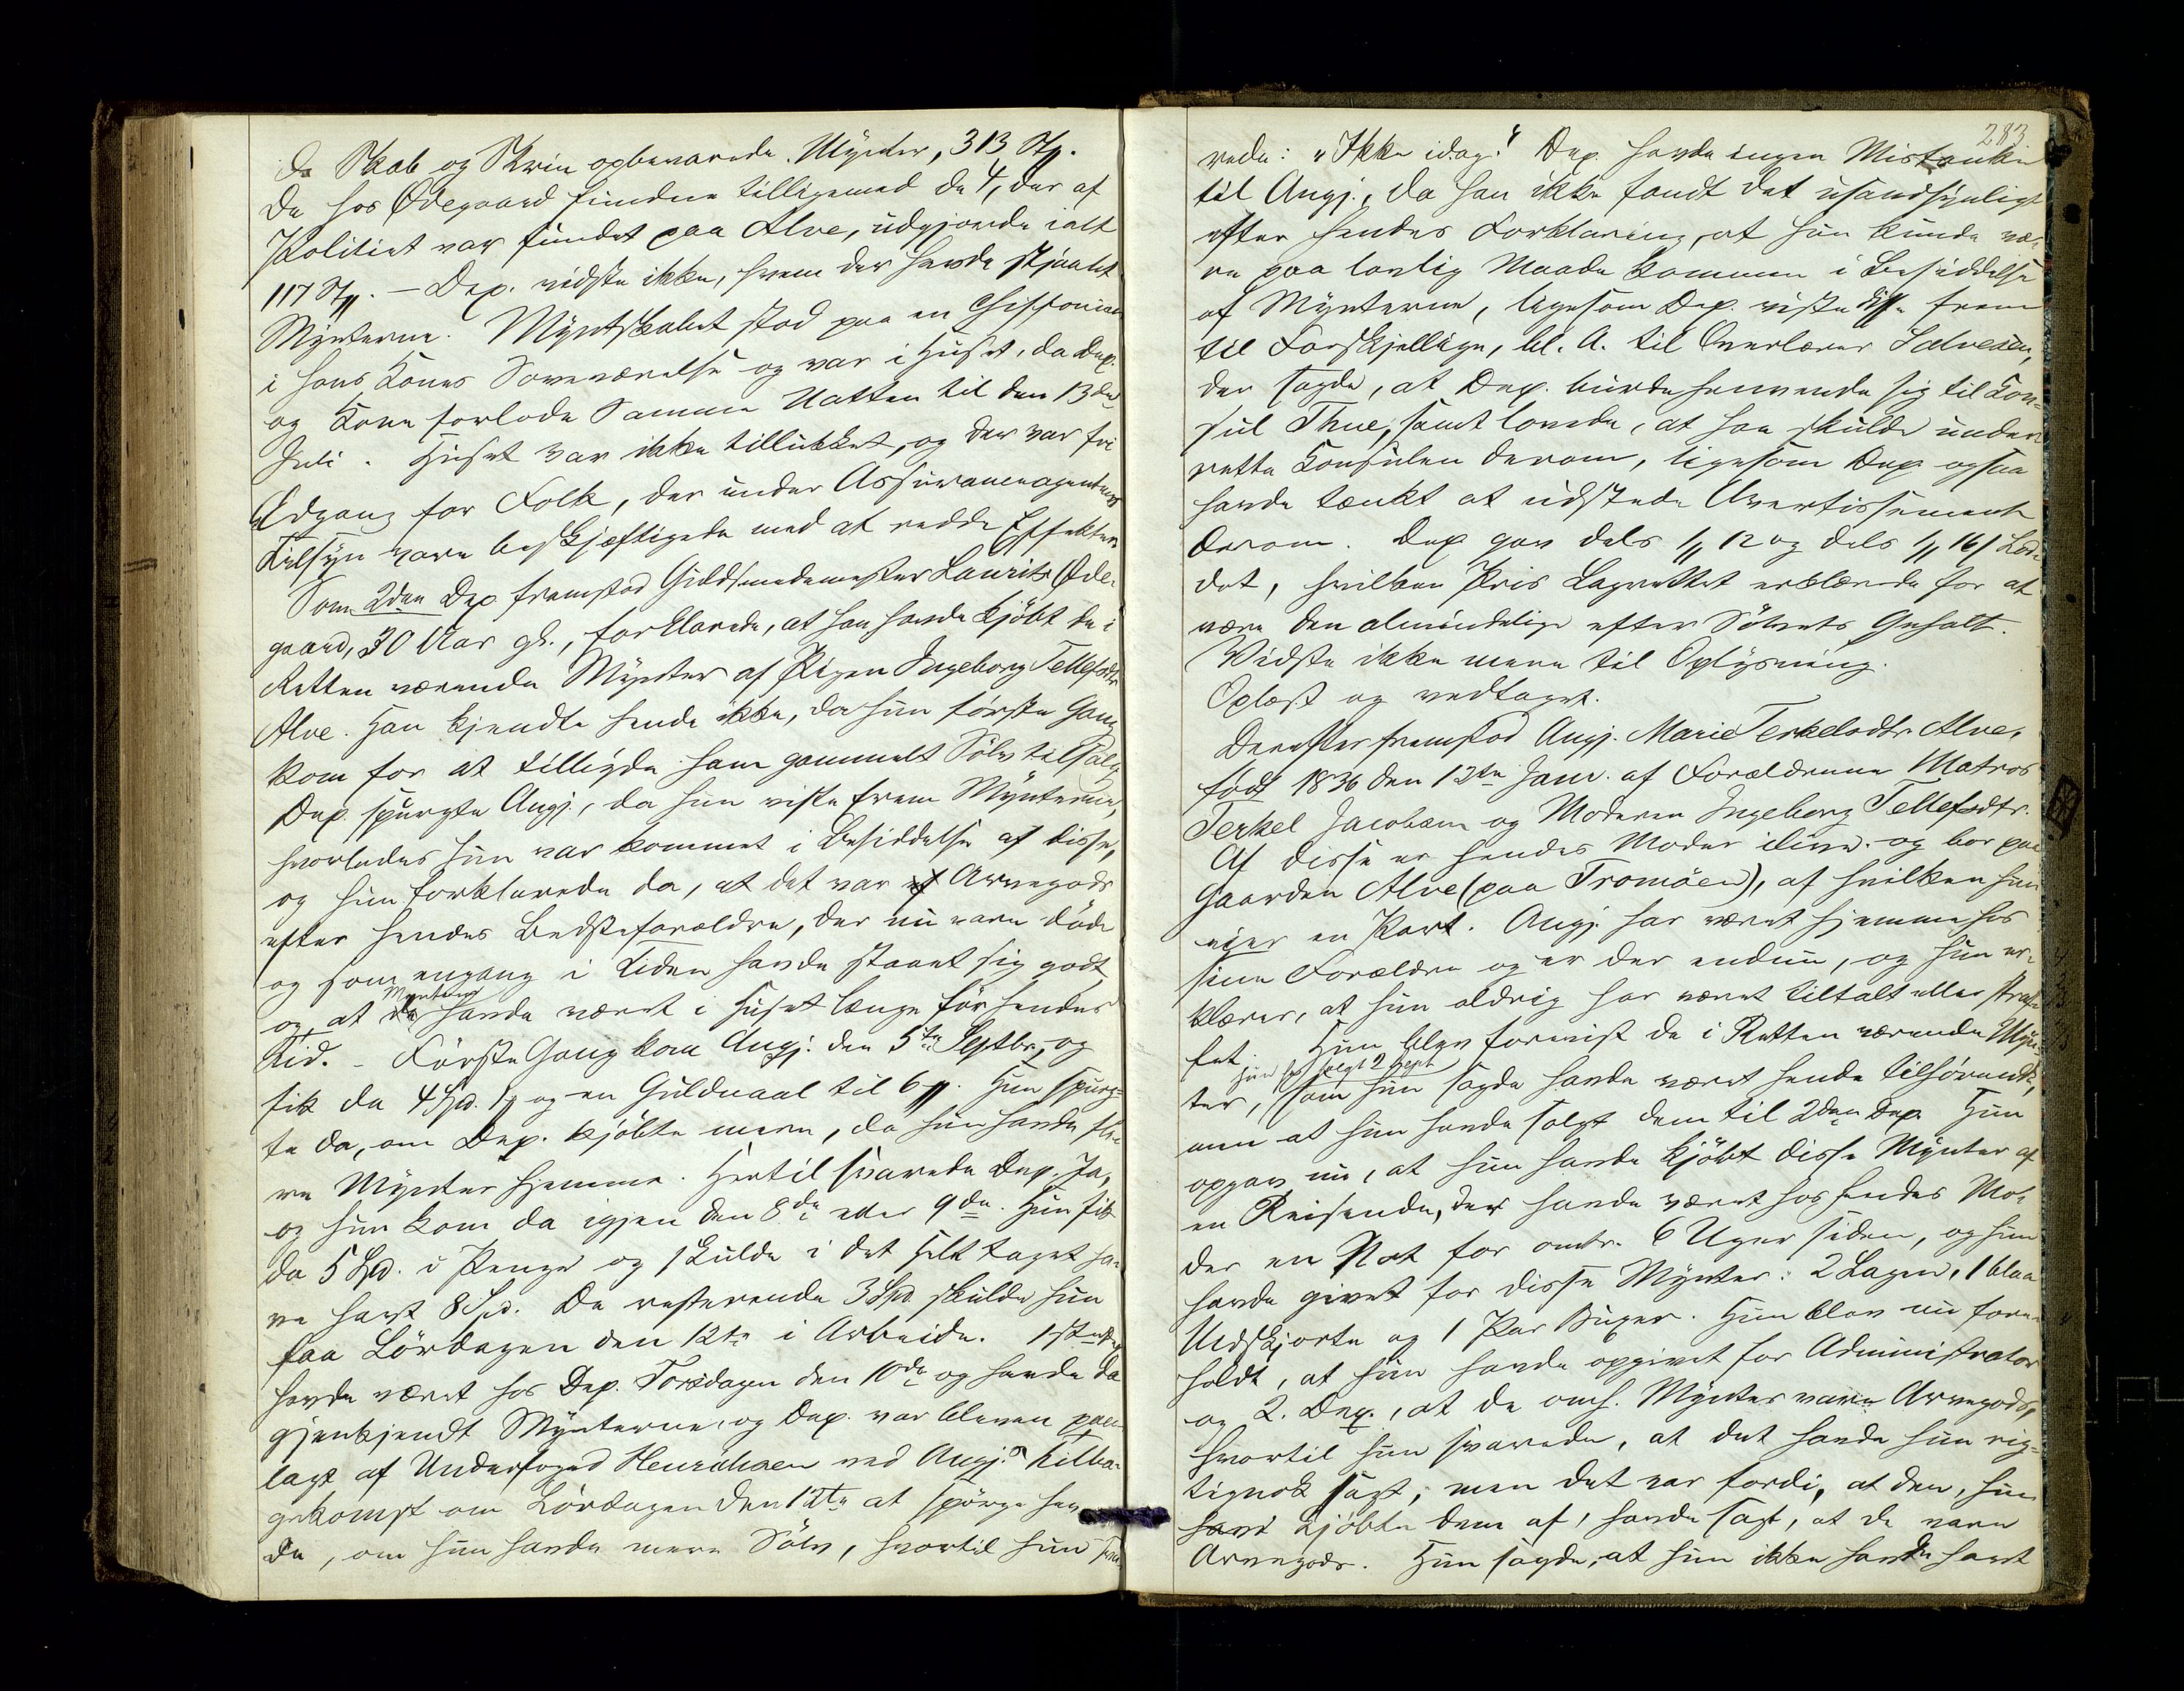 da Skab og Skrin opbevarede Mynter, 313 Stk.
De hos Ødegaard fundne tilligemed de 4, der af
Politiet var fundet paa Alve, udgjorde ialt
117 Stk. – Dep. vidste ikke, hvem der havde stjaalet
Mynterne. Myntskabet stod paa en Chiffoniere
i hans Kones Soveværelse og var i Huset, da Dep.
og Kone forlode Samme Natten til den 13de
Juli. Huset var ikke tillukket, og der var fri
Adgang for Folk, der under Assuranceagenternes
Tilsyn vare beskjæftigede med at redde Effekter.
Som 2den Dep fremstod Guldsmedemester Laurits Øde-
gaard, 30 Aar gl., forklarede, at han havde kjöbt de i
Retten værende Mynter af Pigen Ingeborg Tellefsdtr
Alve. Han kjendte hende ikke, da hun förste Gang
kom for at tilbyde ham gammelt Sölv tilsalg.
Dep. spurgte Angj., da hun viste frem Mynterne,
hvorledes hun var kommet i Besiddelse af disse,
og hun forklarede da, at det var Arvegods
efter hendes Bedsteforældre, der nu vare döde
og som engang i Tiden havde staaet sig godt,
og at Mynterne havde været i Huset længe för hendes
Tid. – Förste Gang kom Angj. den 5te Septbr, og
fik da 4 Spd. 1 og en Guldnaal til 6. Hun spurg-
te da, om Dep. kjöbte mere, da hun havde fle-
re Mynter hjemme. Hertil svarede Dep. Ja,
og hun kom da igjen den 8de eller 9de. Hun fik
da 5 Spd. i Penge og skulde i det Hele taget ha-
ve havt 8 Spd. De resterende 3 Spd. skulde hun
faa Lördagen den 12te i Arbeide. 1ste Dep
havde været hos Dep. Torsdagen den 10de og havde da
gjenkjendt Mynterne, og Dep. var bleven paa-
lagt af Underfoged Henrichsen ved Angj.s Tilba-
gekomst om Lördagen den 12te at spörge hen-
de, om hun havde mere Sölv, hvortil hun sva-
283
rede: "Ikke idag." Dep. havde ingen Mistanke
til Angj., da han ikke fandt det usandsynligt
efter hendes Forklaring, at hun kunde væ-
re paa lovlig Maade kommen i Besiddelse
af Mynterne, ligesom Dep. viste disse frem
til Forskjellige, bl. A. til Overlærer Salvesen,
der sagde, at Dep. burde henvende sig til Kon-
sul Thue, samt lovede, at han skulde under-
rette Konsulen derom, ligesom Dep ogsaa
havde tænkt at udstede Avertissement
derom. Dep gav dels 12 og dels 16 Lod-
det, hvilken Pris Lagrettet erklærede for at
være den almindelige efter Sölvets Gehalt.
Vidste ikke mere til Oplysning.
Oplæst og vedtaget.
Derefter fremstod Angj. Marie Terkelsdtr Alve,
født 1836 den 12te Janr. af Forældrene Matros
Terkel Jacobsen og Moderen Ingeborg Tellefsdtr.
Af disse er hendes Moder ilive og bor paa
Gaarden Alve (paa Tromöen), af hvilken hun
eier en Part. Angj. har været hjemme hos
sine Forældre og er der endnu, og hun er-
klærer, at hun aldrig har været tiltalt eller straf-
fet. Hun blev forevist de i Retten værende Myn-
ter, som hun sagde havde været hende tilhörende,
men at hun havde solgt dem til 2den Dep Hun
opgav nu, at hun havde kjöbt disse Mynter af
en Reisende, der havde været hos hendes Mo-
der en Nat for omtr. 6 Uger siden, og hun
havde givet for disse Mynter: 2 Lagen, 1 blaa
Uldskjorte og 1 Par Buxer. Hun blev nu fore-
holdt, at hun havde opgivet for Administrator
og 2. Dep., at de omh. Mynter vare Arvegods,
hvortil hun svarede, at det havde hun rig-
tignok sagt, men det var fordi, at den, hun
kjöbte dem af, havde sagt, at de vare
Arvegods. Hun sagde, at hun ikke havde havt